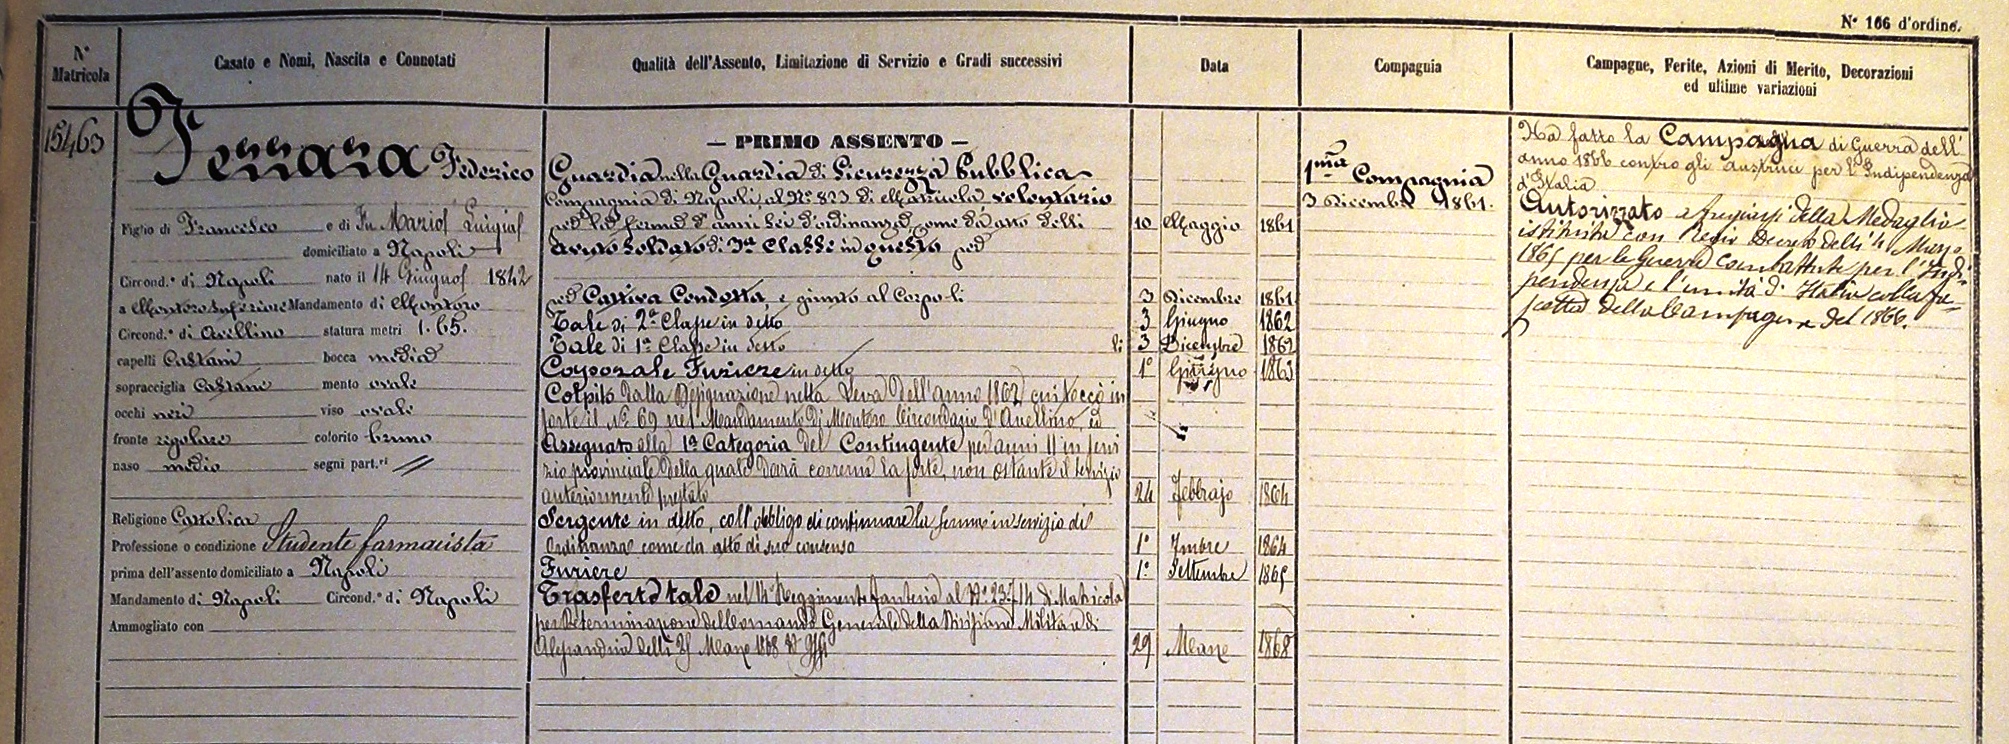 N° 166 d'ordine.
N° Matricola
Casato e Nomi, Nascita e Connotati
Qualità dell'Assento, Limitazione di Servizio e Gradi successivi
Data
Compagnia
Campagne, Ferite, Azioni di Merito, Decorazioni
ed ultime variazioni
15463
Ferrara Federico
Figlio di Francesco e di Fu Maria Luigia
domiciliato a Napoli
Circond.° di Napoli nato il 14 Giugno 1842
a Montoro Inferiore Mandamento di Montoro
Circond.° di Avellino statura metri 1.65.
capelli Castani bocca media
sopracciglia Castane mento ovale
occhi neri viso ovale
fronte regolare colorito bruno
naso medio segni part.ri //
Religione Cattolica
Professione o condizione Studente farmacista
prima dell'assento domiciliato a Napoli
Mandamento di Napoli Circond.° di Napoli
Ammogliato con
— PRIMO ASSENTO —
Guardia nella Guardia di Sicurezza Pubblica
Compagnia di Napoli al N° 823 di Matricola, volontario
per la ferma d'anni sei d'ordinanza come da atto delli 10 Maggio 1861
Soldato di 3a Classe in questo
per Cattiva Condotta, e giunto al Corpo li 3 Dicembre 1861
Tale di 2a Classe in detto 3 Giugno 1862
Tale di 1a Classe in detto li 3 Dicembre 1862
Caporale Furiere in detto 1° Giugno 1863
Colpito dalla Designazione nella Leva dell'anno 1862 cui toccò in
sorte il N° 69 nel Mandamento di Montoro Circondario d'Avellino, ed
Assegnato alla 1a Categoria del Contingente per anni 11 in servi
zio provinciale della quale dovrà correrne la sorte, non ostante il servizio
anteriormente prestato 24 Febbrajo 1864
Sergente in detto, coll'obbligo di continuare la ferma in servizio di
Ordinanza come da atto di suo consenso 1° 1864
Furiere 1° Settembre 1865
Trasferto tale nel Reggimento fanteria al N° 23714 di Matricola
per Determinazione del Comando Generale della Divisione Militare di
Alessandria delli 25 Marzo 1868 N° 29 Marzo 1868
1ma Compagnia
3 Dicembre 1861.
Ha fatto la Campagna di Guerra dell'
anno 1866 contro gli austriaci per l'Indipendenza
d'Italia
Autorizzato a fregiarsi della Medaglia
istituita con Regio Decreto delli 4 Marzo
1865 per le guerre combattute per l'Indi-
pendenza e l'unità d'Italia colla fa-
scetta della Campagna del 1866.